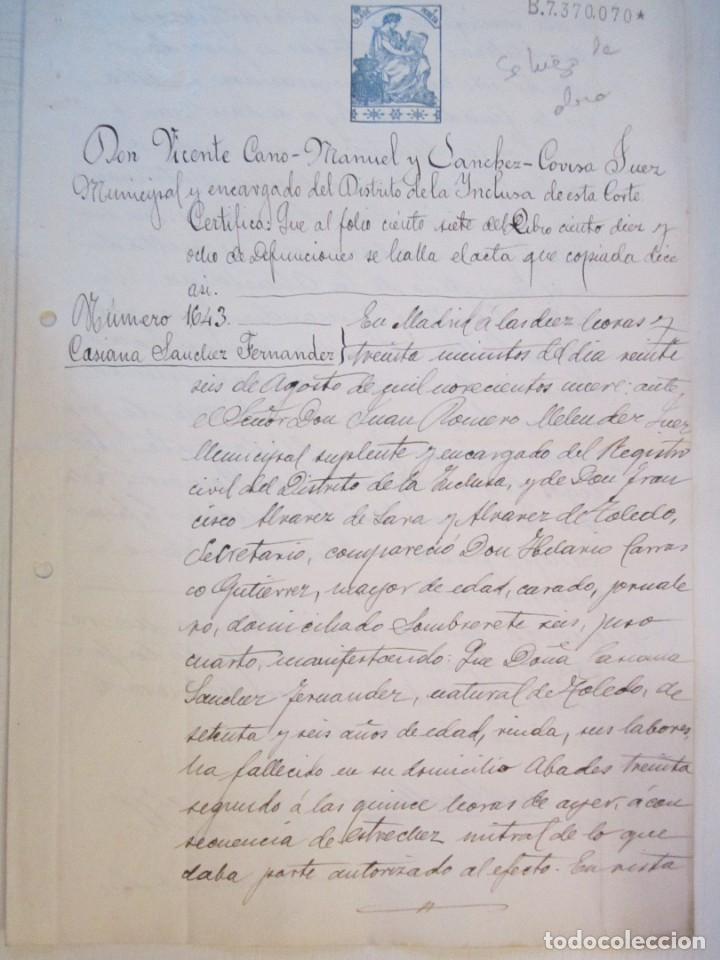 B.7.370.070*
Don Vicente Cano-Manuel y Sanchez-Covisa Juez
Municipal y encargado del Distrito de la Inclusa de esta Corte
Certifico: Que al folio ciento siete del Libro ciento diez y
ocho de Defunciones se halla el acta que copiada dice
asi.
Número 1643.
Casiana Sanchez Fernandez
En Madrid á las diez horas y
treinta minutos del dia veinte
seis de Agosto de mil novecientos nueve: ante
el Señor Don Juan Romero Melendez Juez
Municipal suplente y encargado del Registro
civil del Distrito de la Inclusa, y de Don Fran
cisco Alvarez de Lara y Alvarez de Toledo,
Secretario, compareció Don Hilario Carras
co Gutierrez, mayor de edad, casado, jornale
ro, domiciliado Sombrerete seis, piso
cuarto, manifestando: Que Doña Casiana
Sanchez Fernandez, natural de Toledo, de
setenta y seis años de edad, viuda, sus labores,
ha fallecido en su domicilio Abades treinta
segundo á las quince horas de ayer, á con
secuencia de estrechez mitral de lo que
daba parte autorizado al efecto. En vista
todocoleccion.net